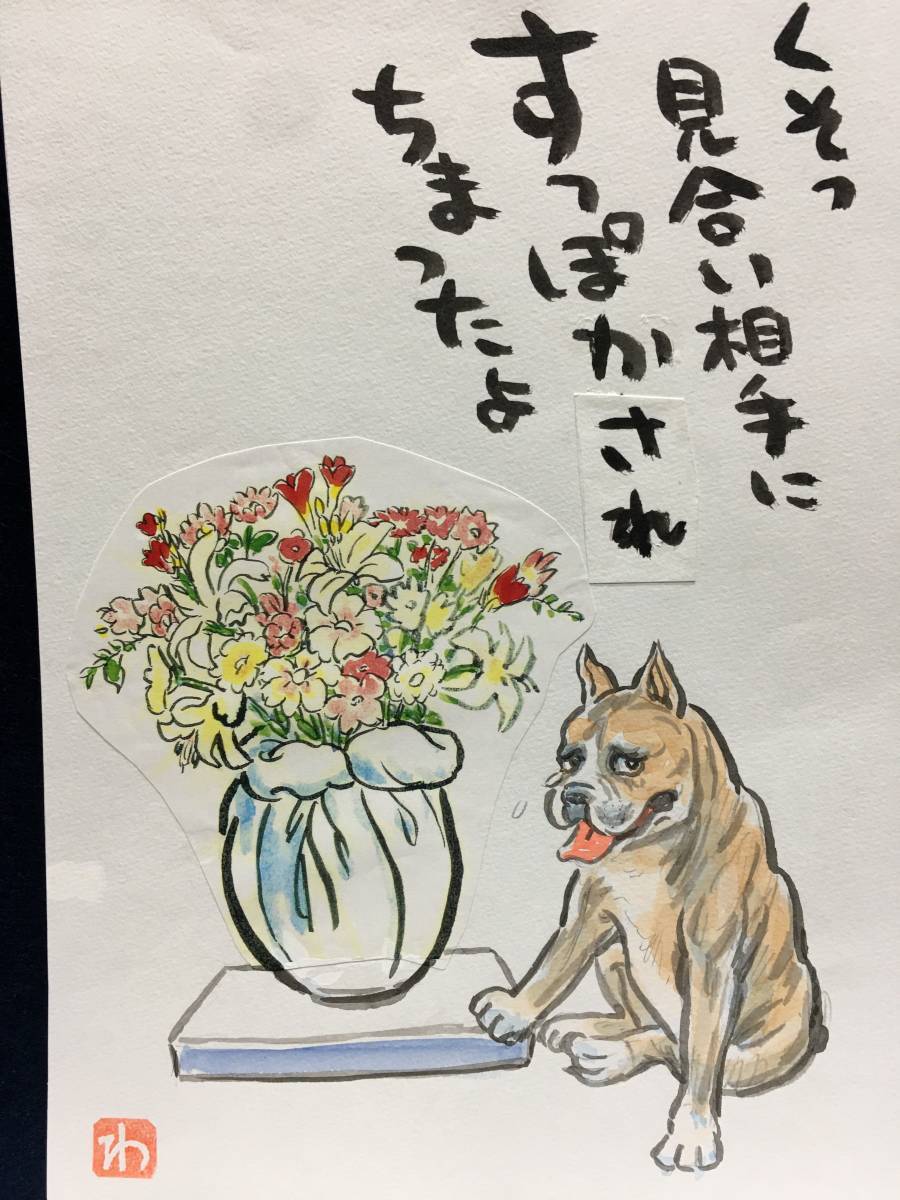 くそっ
見合い相手に
すっぽかされ
ちまったよ
わ